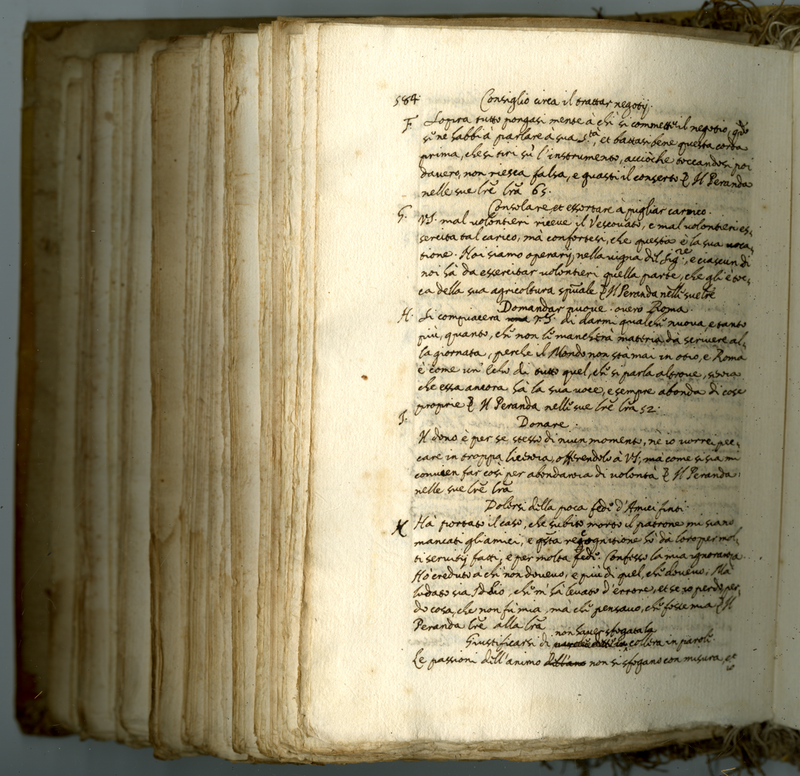 584 Consiglio circa il trattar negotij.
F. Sopra tutto pongasi mente à chi si commette il negotio, che
si ne habbia parlare à sua S.tà, et battasi bene questa corda
prima, che si tiri sù l'instrumento, acciòche toccandosi poi
davero, non riesca falsa, e guasti il conserto & Il Peranda
nelle sue lre lra 65.
Consolare, et essortare à pigliar carico.
G. VS. mal volontieri riceve il Vescovato, e mal volontieri es-
sercita tal carico, mà confortesi, che questa è la sua voca-
tione. Noi siamo operarij nella vigna dil Sig.re, e ciascun di
noi hà da essercitar volontieri quella parte, che gli è toc-
ca della sua agricoltura spüale & Il Peranda nelle sue lre
Domandar nuove. overo Roma
H. Si compiacerà VS. di darmi qualche nuova, e tanto
più, quanto, che non li mancherà materia da scrivere al-
la giornata, perche il Mondo non stà mai in otio, e Roma
è come un' Echo di tutto quel, che si parla altrove, senza
che essa ancora hà la sua voce, e sempre abonda di cose
proprie & Il Peranda nelle sue lre lra 52.
I. Donare.
Il dono è per se stesso di niun momento, ne io vorrei pec-
care in troppa licenza, offerendolo à VS, mà come si sia mi
convien far così per abondanza di volontà & Il Peranda
nelle sue lre lra
Dolersi della poca fede d'Amici finti.
K Hà portato il caso, che subito morto il patrone mi siano
mancati gli amici, e qsta recognitione hò da loro per mol-
ti servitij fatti, e per molta fede. Confesso la mia ignoranza
Hò creduto à chi non dovevo, e più di quel, che dovevo; Mà
lodato sia Iddio, che m'hà levato d'errore, et se io perdo, per-
do cosa, che non fù mia, ma che pensavo, che fosse mia & Il
Peranda lre alla lra
non haver sfogata la
Giustificarsi di collera in parole
Le passioni dell'animo non si sfogano con misura, et
io